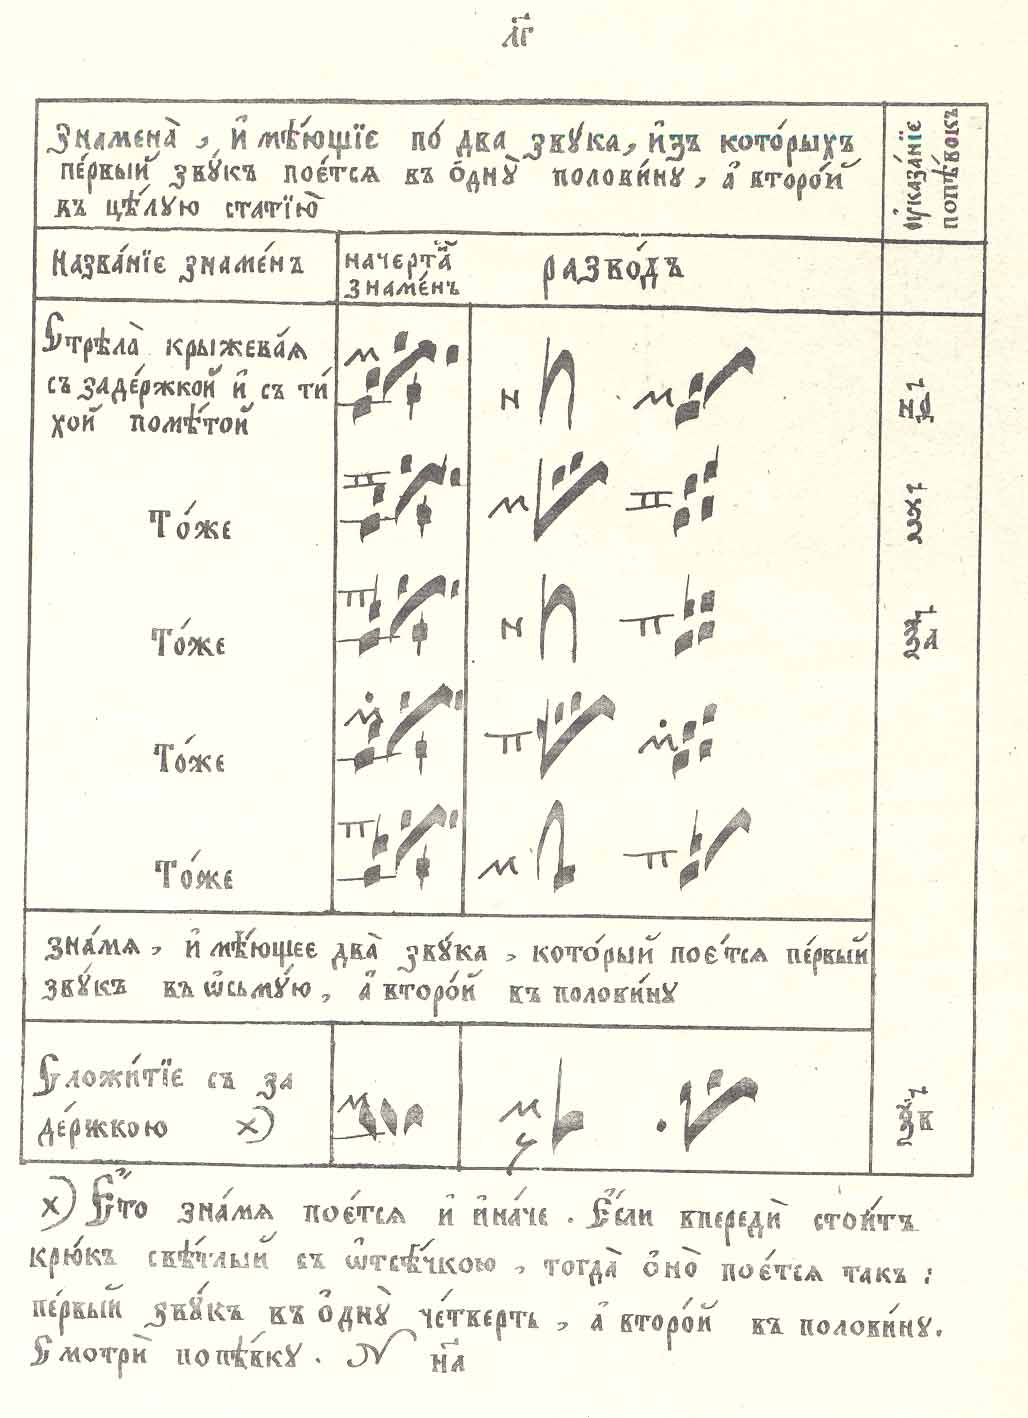 л҃г
Знамена̀, и҆мѣ́ющїе по́ два звꙋ́ка, и҆зъ кото́рыхъ
пе́рвый звꙋ́къ пое́тся въ о҆днꙋ̀ полови́нꙋ, а҆ второ́й
въ цѣ́лꙋю статїю̀
Оу҆каза́нїе
попѣ́вокъ
Назва́нїе знаме́нъ
начерта̑
знаме́нъ
разво́дъ
Стрѣла̀ крыжева́я
съ заде́ржкой и҆ съ ти́
хой помѣ́той
То́же
То́же
То́же
То́же
Зна́мя, и҆мѣ́ющее два̀ звꙋ́ка, кото́рый пое́тся пе́рвый
звꙋ́къ въ ѻ҆сьмꙋ́ю, а҆ второ́й въ полови́нꙋ
Сложи́тїе съ за
де́ржкою х)
х) Е҆́то зна́мя пое́тся и҆ и҆на́че. Е҆́сли впередѝ стои́тъ
крю́къ свѣ́тлый съ ѿсѣ́чкою, тогда̀ о҆но̀ пое́тся такъ:
пе́рвый звꙋ́къ въ о҆днꙋ̀ че́тверть, а҆ второ́й въ полови́нꙋ.
Смотрѝ попѣ́вкꙋ. N н҃а